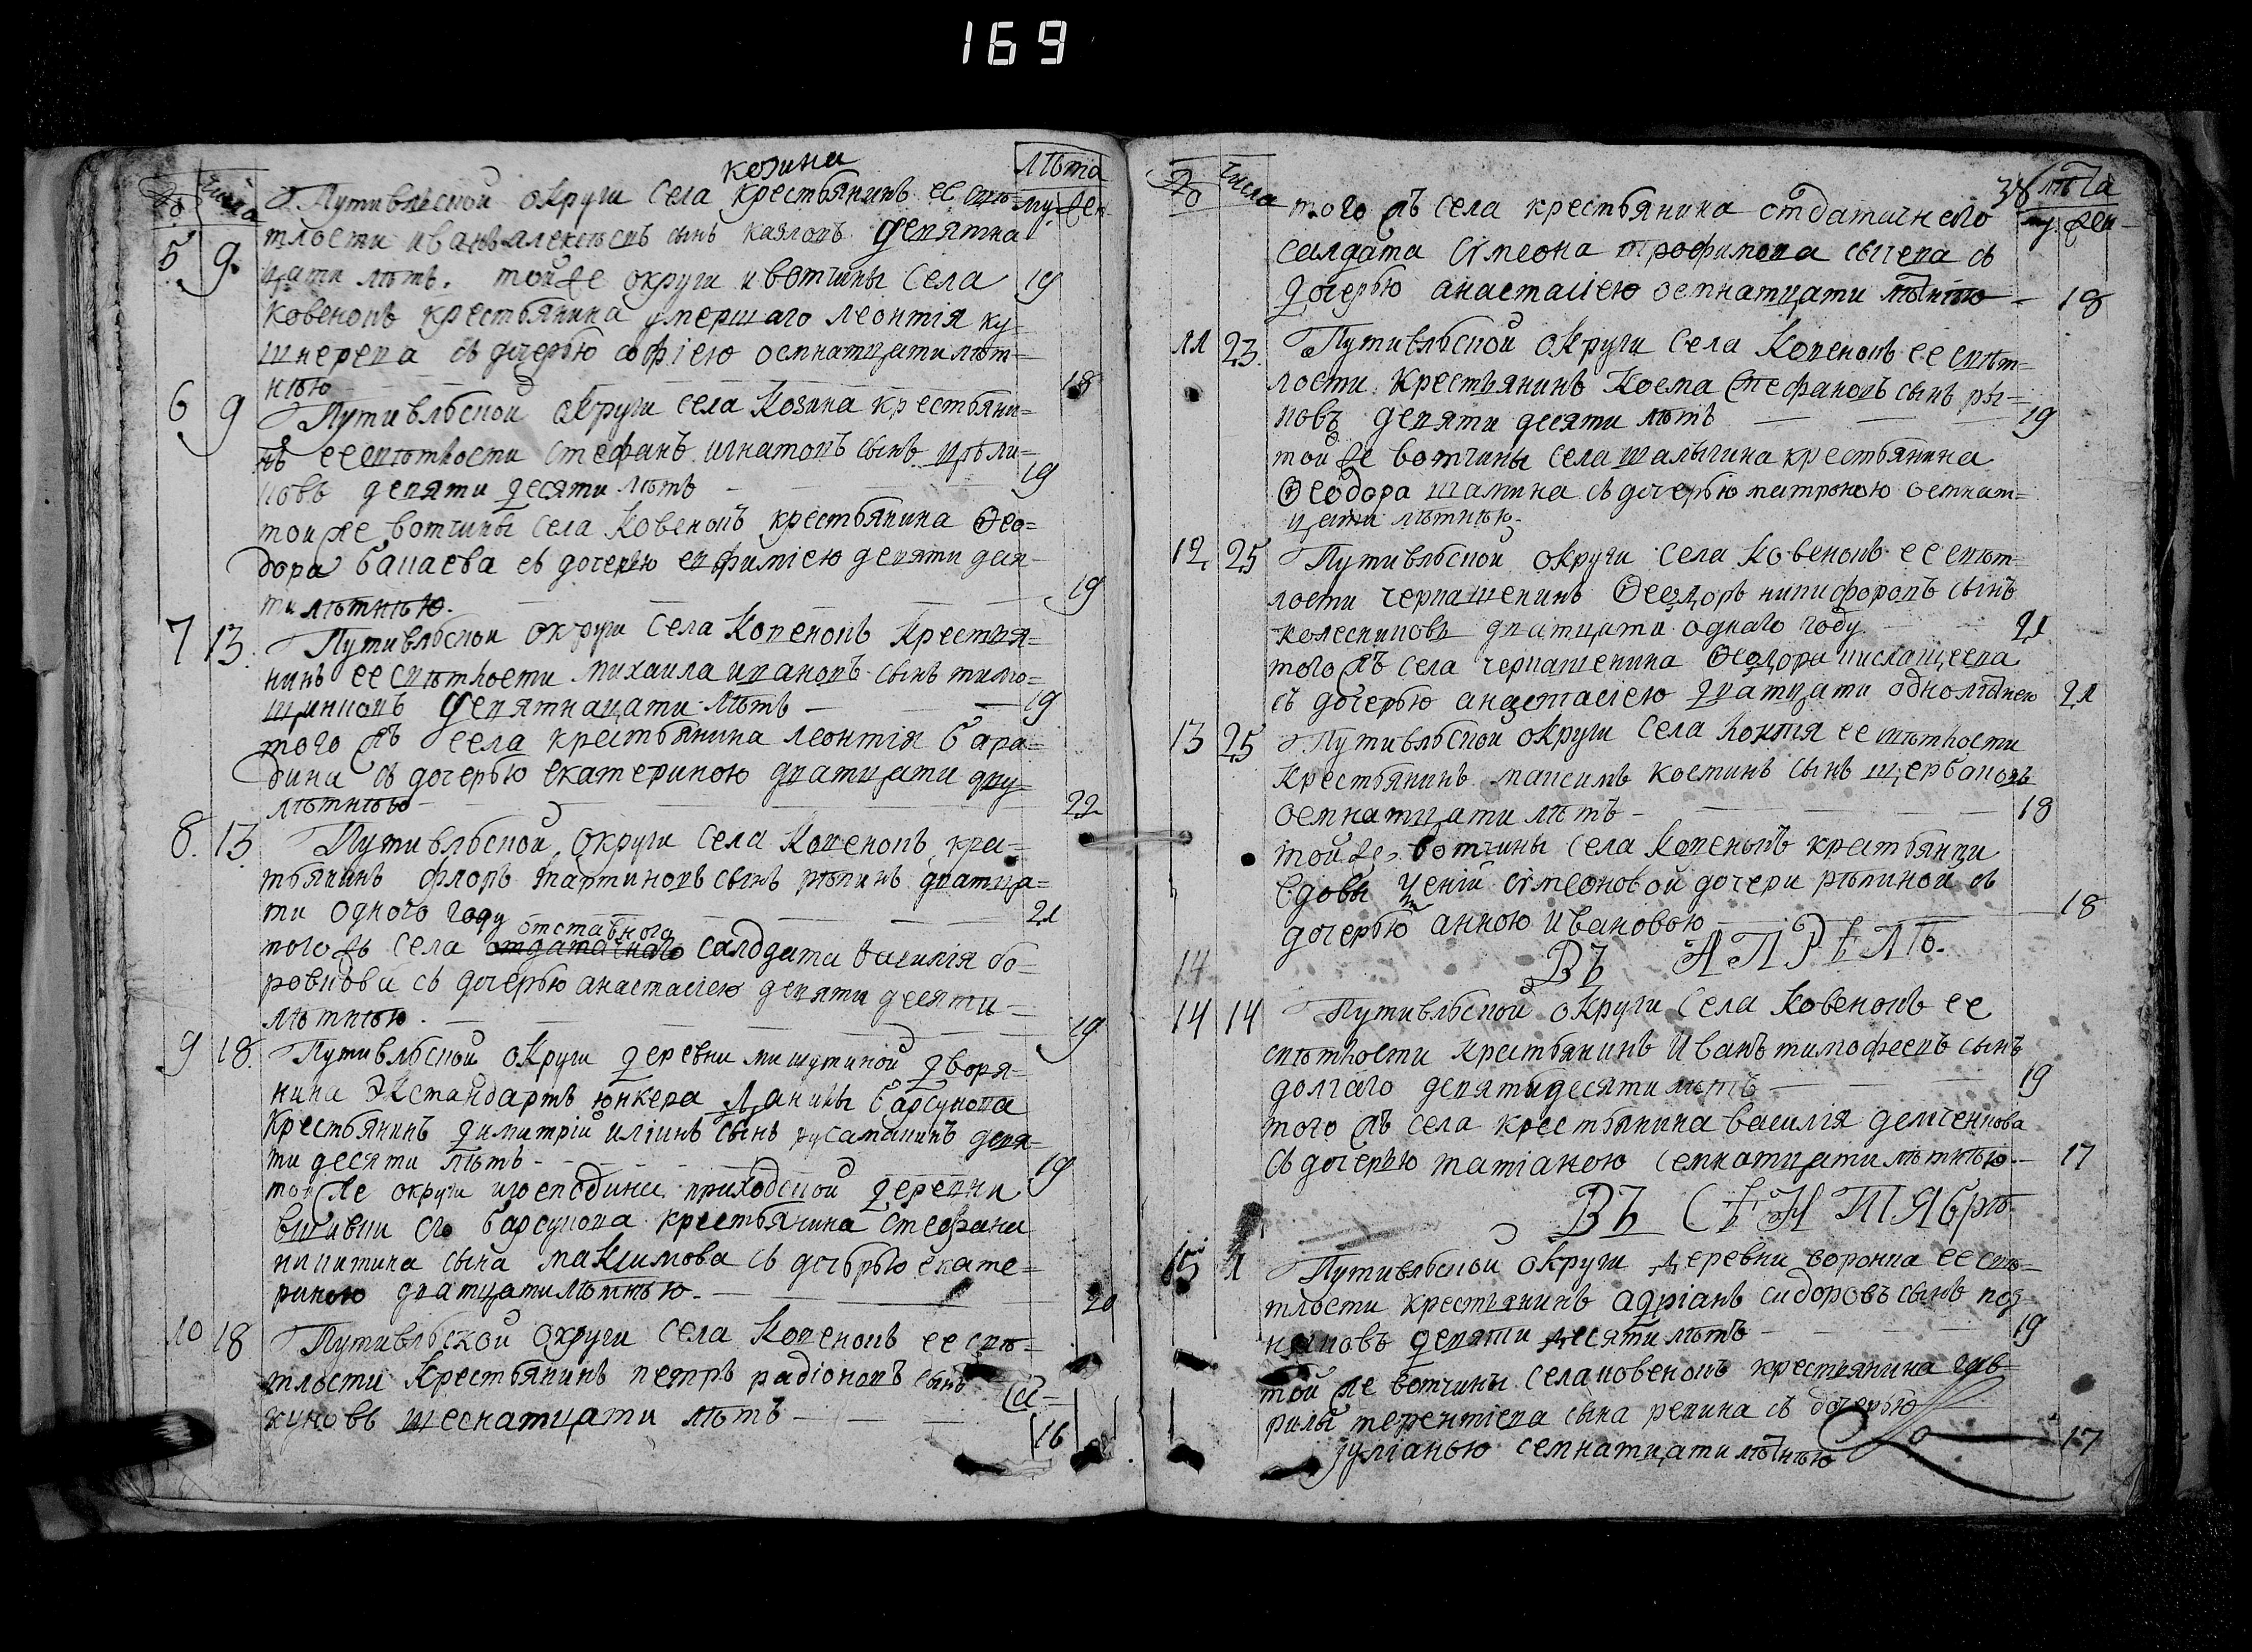 169
№ числа козина лѣта
Путивлской округи села крестьянинъ ее свѣ= му. жен
5 9. тлости иванъ алексѣевъ сынъ казловъ девятна
цати лѣтъ. той же округи и вотчины села 19
ковенокъ крестьянина умершаго леонтія ку=
шнерева съ дочерью софіею осмнатцати лѣт=
нѣю 18
6 9 Путивлской округи села козина крестьяни=
нъ ее свѣтлости стефанъ игнатовъ сынъ
девяти десяти лѣтъ 19
той же вотчины села ковенокъ крестьянина Ѳео=
дора съ дочерью евфиміею девяти деся=
ти лѣтнѣю. 19
7 13. Путивлской округи села ковенокъ крестья=
нинъ ее свѣтлости михаила ивановъ сынъ тимо=
девятнацати лѣтъ 19
того жъ села крестьянина леонтія бара=
дина съ дочерью екатериною дватцати дву=
лѣтнѣю 22
8. 13. Путивлской округи села ковенокъ кре=
стьянинъ флоръ мартиновъ сынъ рѣпинъ дватца=
ти одного году 21
отставного
того жъ села отдаточнаго салдата василія бо=
ровкова съ дочерью анастасіею девяти десяти=
лѣтнѣю. 19
9 18. Путивлской округи деревни мишутиной дворя=
нина Экстандартъ юнкера Данилы барсукова
крестьянинъ димитрій иліинъ сынъ девя=
ти десяти лѣтъ 19
той же округи и господина приходской деревни
его барсукова крестьянина стефана
никитина сына максимова съ дочерью екате=
риною дватцатилѣтнѣю. 20
10 18 Путивлской округи села ковенокъ ее свѣ=
тлости крестьянинъ петръ радіоновъ сынъ са=
куновъ шеснатцати лѣтъ 16
№ числа 38 лѣта
того жъ села крестьянина отдаточнего му. жен
салдата симеона трофимова сычева съ
дочерью анастасіею осмнатцати лѣтнѣю 18
11 23. Путивлской округи села ковенокъ ее свѣт=
лости крестьянинъ косма стефановъ сынъ ры=
ковъ девяти десяти лѣтъ 19
той же вотчины села шалыгина крестьянина
Ѳеодора шамина съ дочерью матроною осмнат=
цати лѣтнѣю.
12 25 Путивлской округи села ковенокъ ее свѣт=
лости черкашенинъ Ѳеодоръ никифоровъ сынъ
колесниковъ дватцати однаго году 21
того жъ села черкашенина Ѳеодора кислащеева
съ дочерью анастасіею дватцати однолѣтнею 21
13 25 Путивлской округи села ее свѣтлости
крестьянинъ максимъ костинъ сынъ щербаковъ
осмнатцати лѣтъ 18
той же вотчины села ковенокъ крестьянки
вдовы симеоновой дочери рѣпиной съ
дочерью анною ивановою 18
14 Въ Апрѣлѣ.
14 14 Путивлской округи села ковенокъ ее
свѣтлости крестьянинъ иванъ тимофеевъ сынъ
долгаго девятидесяти лѣтъ 19
того жъ села крестьянина василія демченкова
съ дочерью татіаною семнатцатилѣтнѣю. 17
Въ Сентябрѣ.
15 1 Путивлской округи деревни воронка ее свѣ=
тлости крестьянинъ адріанъ сидоровъ сынъ
девяти десяти лѣтъ 19
той же вотчины села ковенокъ крестьянина гав=
рилы терентіева сына репина съ дочерью
іуліаною семнатцати лѣтнѣю 17